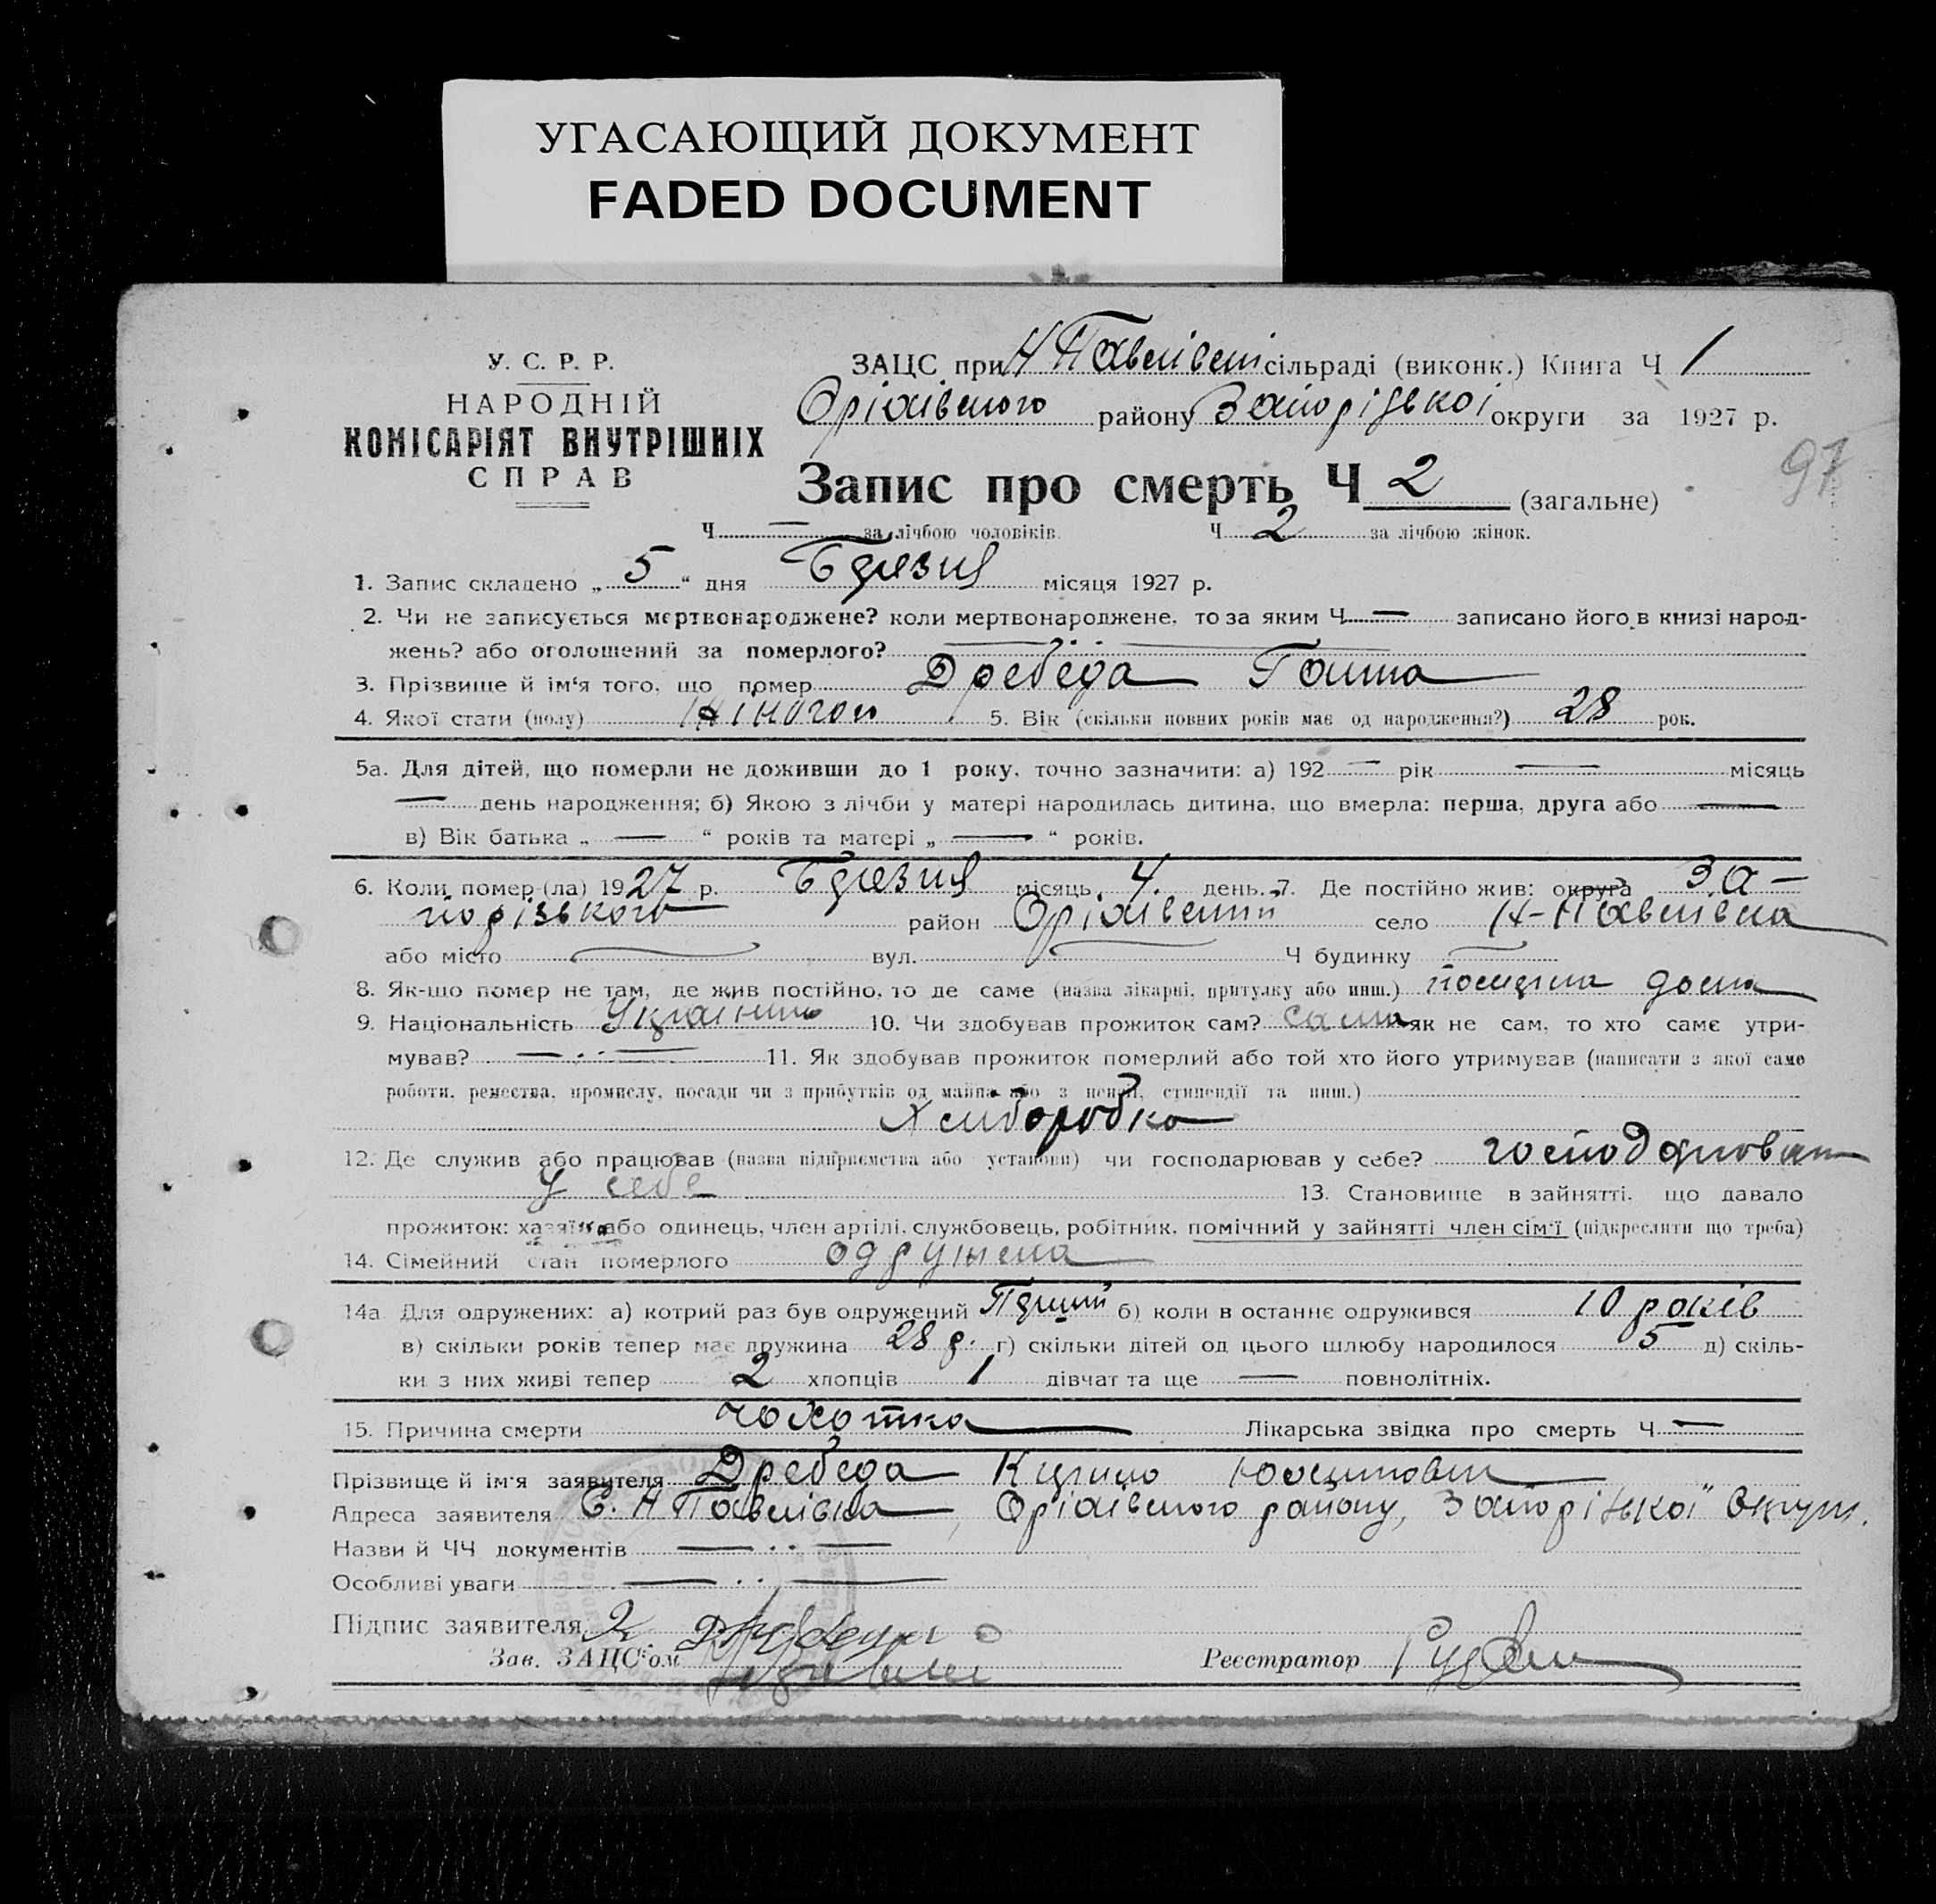 УГАСАЮЩИЙ ДОКУМЕНТ
FADED DOCUMENT
У. С. Р. Р.
НАРОДНІЙ
КОМІСАРІЯТ ВНУТРІШНІХ
СПРАВ
ЗАЦС при Н Павлівський сільраді (виконк.) Книга Ч 1
Оріхівського району Запорізької округи за 1927 р.
97
Запис про смерть Ч 2 (загальне)
Ч — за лічбою чоловіків. Ч 2 за лічбою жінок.
1. Запис складено „ 5 “ дня Березня місяця 1927 р.
2. Чи не записується мертвонароджене? коли мертвонароджене, то за яким Ч — записано його в книзі народ-
жень? або оголошений за померлого? — · · —
3. Прізвище й ім‘я того, що помер Дребеда Ганна
4. Якої стати (полу) Жіночої 5. Вік (скільки повних років має од народження?) 28 рок.
5а. Для дітей, що померли не доживши до 1 року, точно зазначити: а) 192 — рік — місяць
— день народження; б) Якою з лічби у матері народилась дитина, що вмерла: перша, друга або —
в) Вік батька „ — “ років та матері „ — “ років.
6. Коли помер (ла) 1927 р. Березня місяць 4. день. 7. Де постійно жив: округа За-
порізького район Оріхівський село Н-Павлівка
або місто — вул. — Ч будинку —
8. Як-що помер не там, де жив постійно, то де саме (назва лікарні, притулку або инш.) померла дома
9. Національність Українка 10. Чи здобував прожиток сам? сама як не сам, то хто саме утри-
мував? — · · — 11. Як здобував прожиток померлий або той хто його утримував (написати з якої саме
роботи, ремества, промислу, посади чи з прибутків од майна або з пенсії, стипендії та инш.)
Хлиборобка
12. Де служив або працював (назва підприємства або установи) чи господарював у себе? господарював
у себе 13. Становище в зайнятті, що давало
прожиток: хазяїн або одинець, член артілі, службовець, робітник, помічний у зайнятті член сім‘ї (підкреслити що треба)
14. Сімейний стан померлого одружена
14а Для одружених: а) котрий раз був одружений Перший б) коли в останнє одружився 10 років
в) скільки років тепер має дружина 28 р. г) скільки дітей од цього шлюбу народилося 5 д) скіль-
ки з них живі тепер 2 хлопців 1 дівчат та ще — повнолітніх.
15. Причина смерти чохотка Лікарська звідка про смерть Ч —
Прізвище й ім‘я заявителя Дребеда Кирило
Адреса заявителя С. Н Павлівка, Оріхівського району, Запорізької Округи.
Назви й ЧЧ документів — · · —
Особливі уваги — · · —
Підпис заявителя
Зав. ЗАЦС‘ом Реєстратор